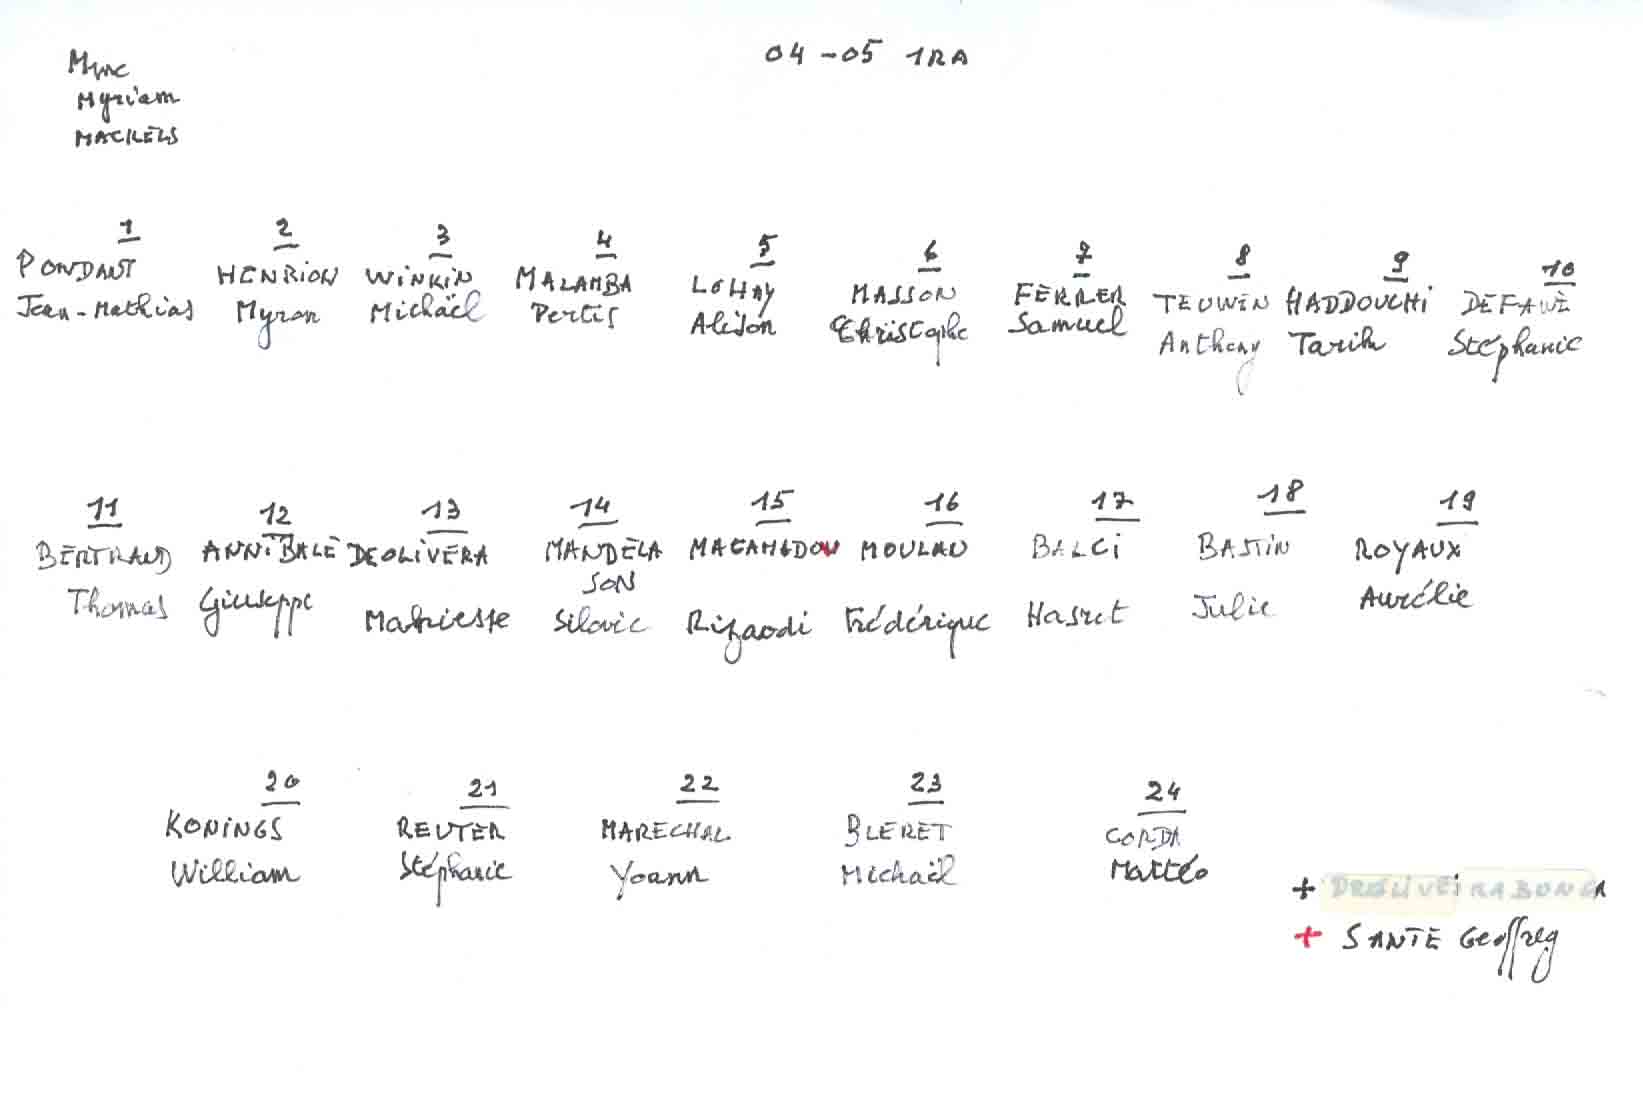 04-05 1RA
Mme
Myriam
MACKELS
1 2 3 4 5 6 7 8 9 10
PONDANT HENRION WINKIN MALAMBA LOHAY MASSON FERRER TEUWEN HADDOUCHI DEFAWE
Jean-Mathias Myron Michaël Pertis Alison Christophe Samuel Anthony Tarik Stéphanie
11 12 13 14 15 16 17 18 19
BERTRAND ANNIBALE DEOLIVERA MANDELA MACAMEDOU MOULAN BALCI BASTIN ROYAUX
SON
Thomas Giuseppe Silovie Rizaodi Frédérique Hasret Julie Aurélie
20 21 22 23 24
KONINGS REUTER MARECHAL BLERET CORDA
William Stéphanie Yoann Michaël Mattéo
+
+ SANTE Geoffrey